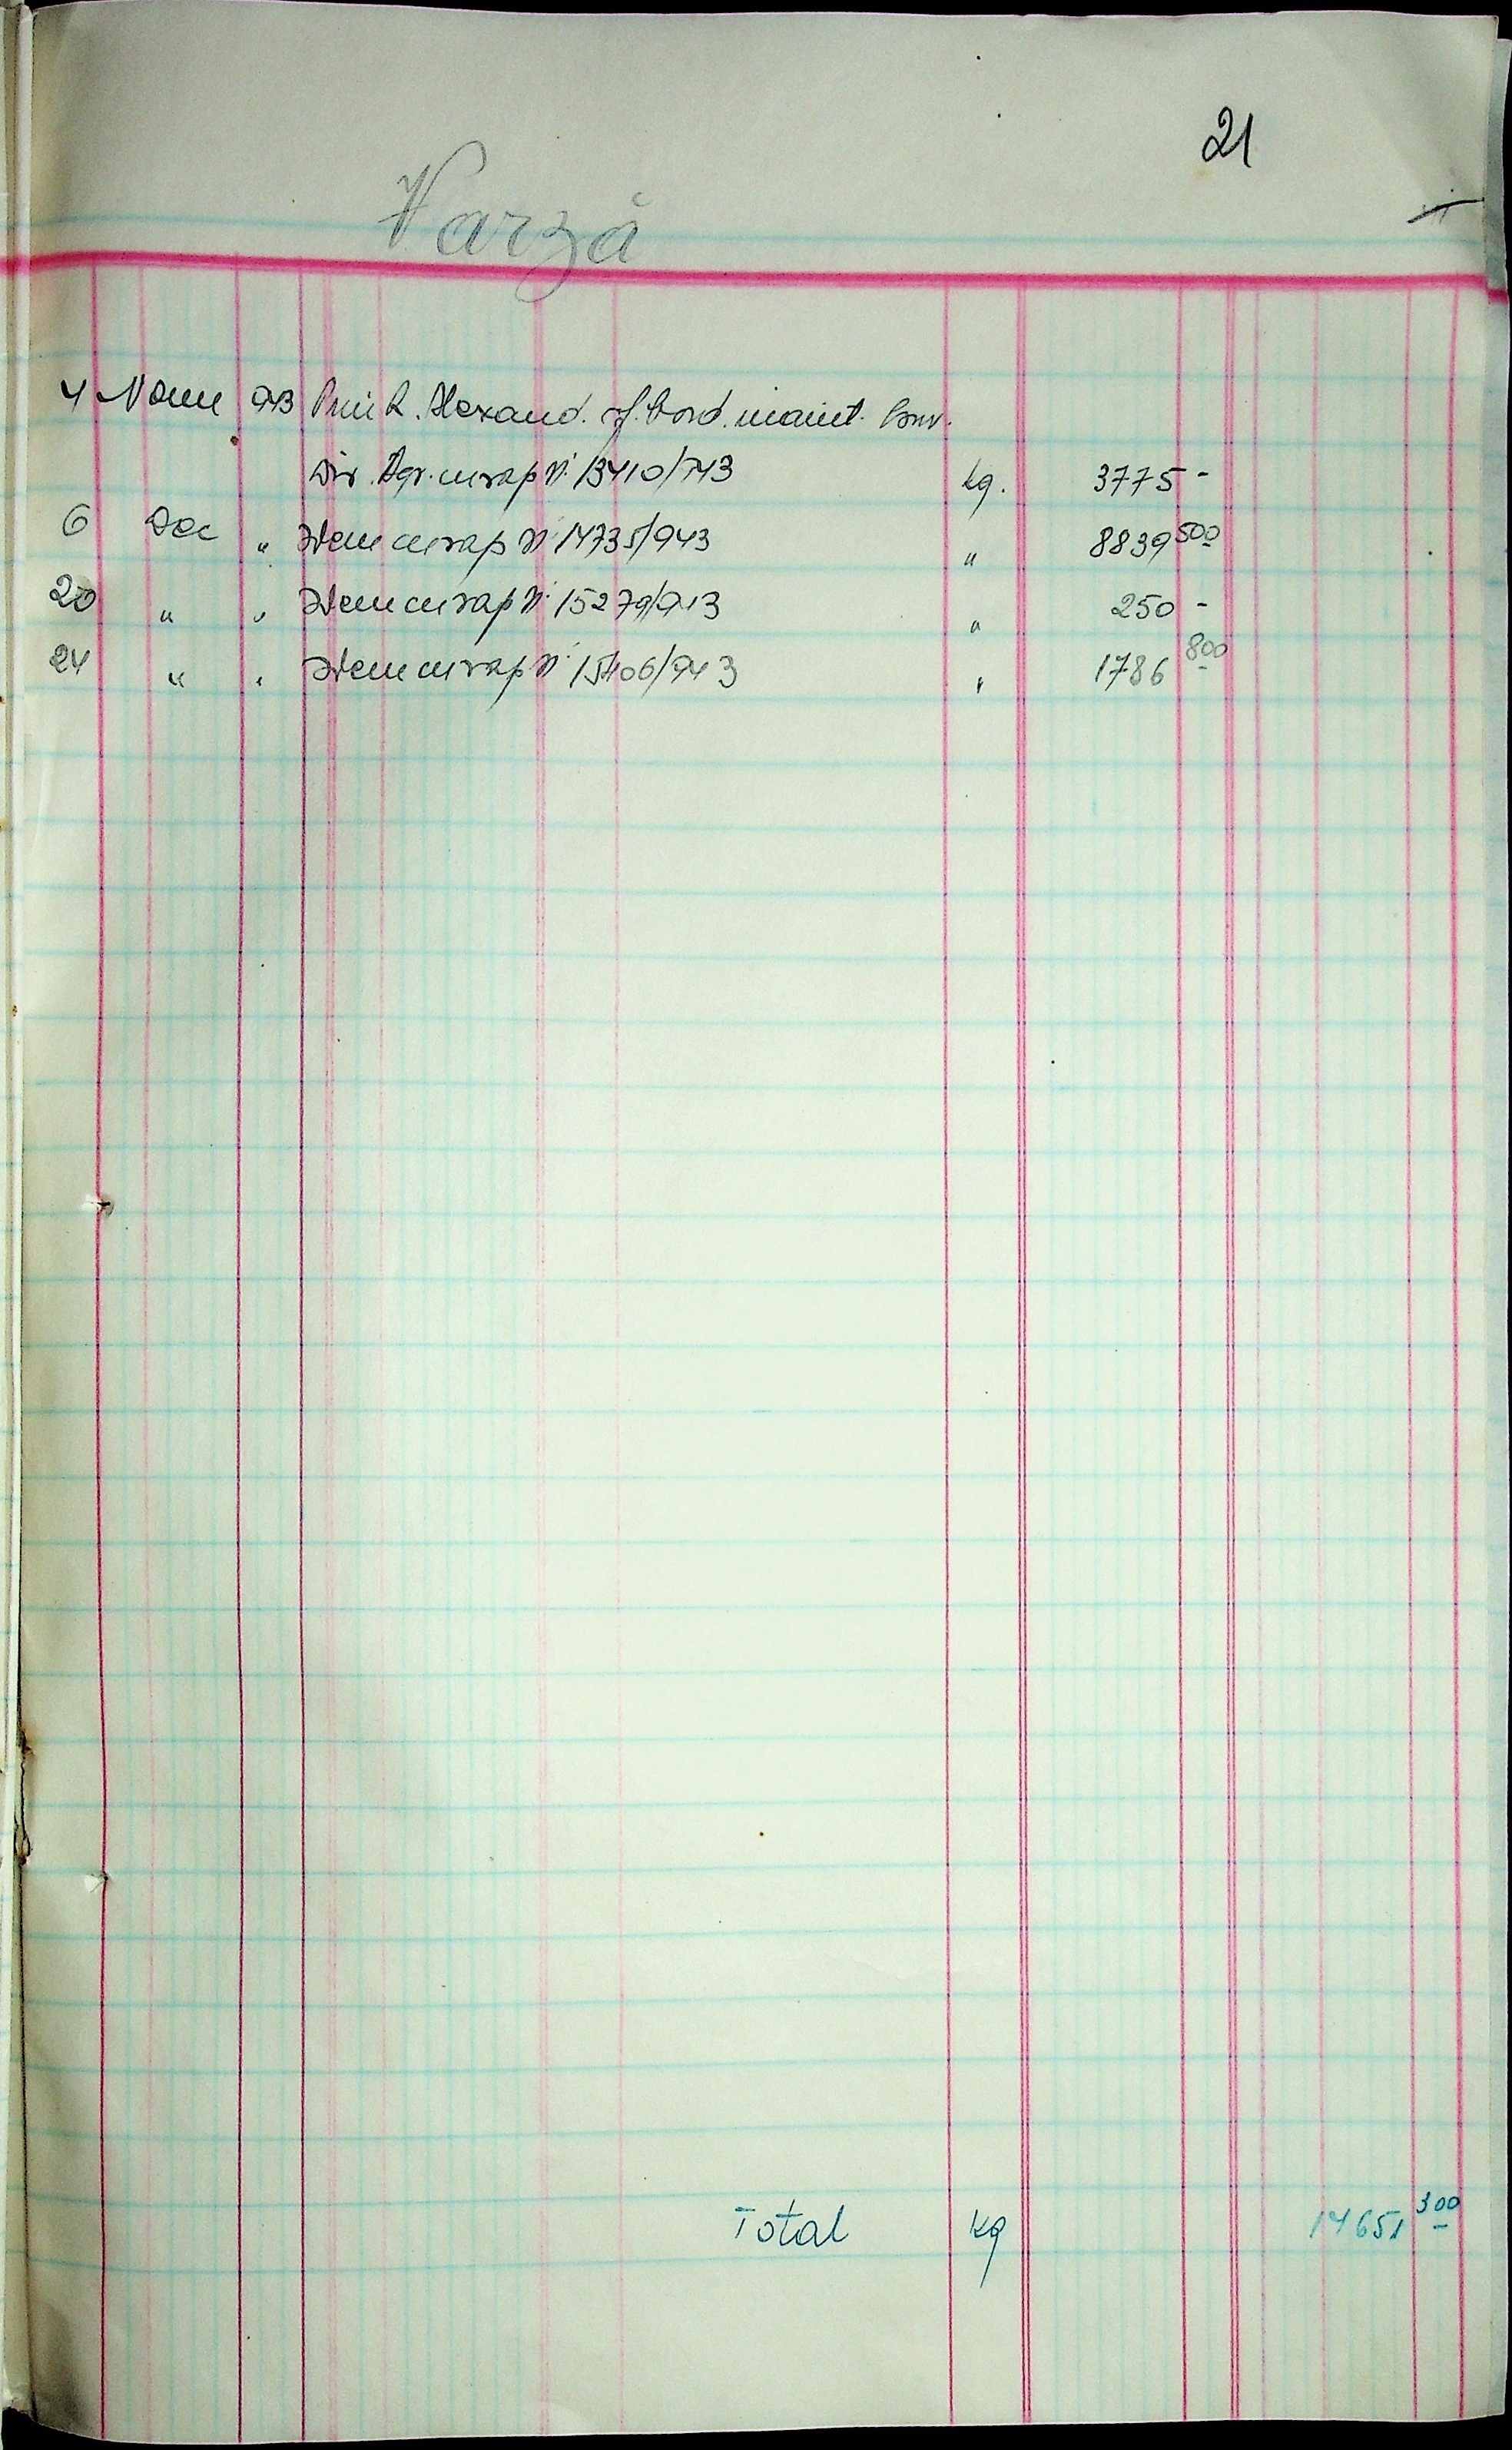 21
Varză
4 Noem 943 Prim R. Alexand. of. Cord. inaint. Conv.
Dir. Agr. cu rap N: 13410/943 kg. 3775 -
6 Dec " Idem cu rap N: 14735/943 " 8839 500
20 " " Idem cu rap N: 15279/943 " 250 -
24 " " Idem cu rap N: 15406/943 " 1786 800
Total kg 14651 300